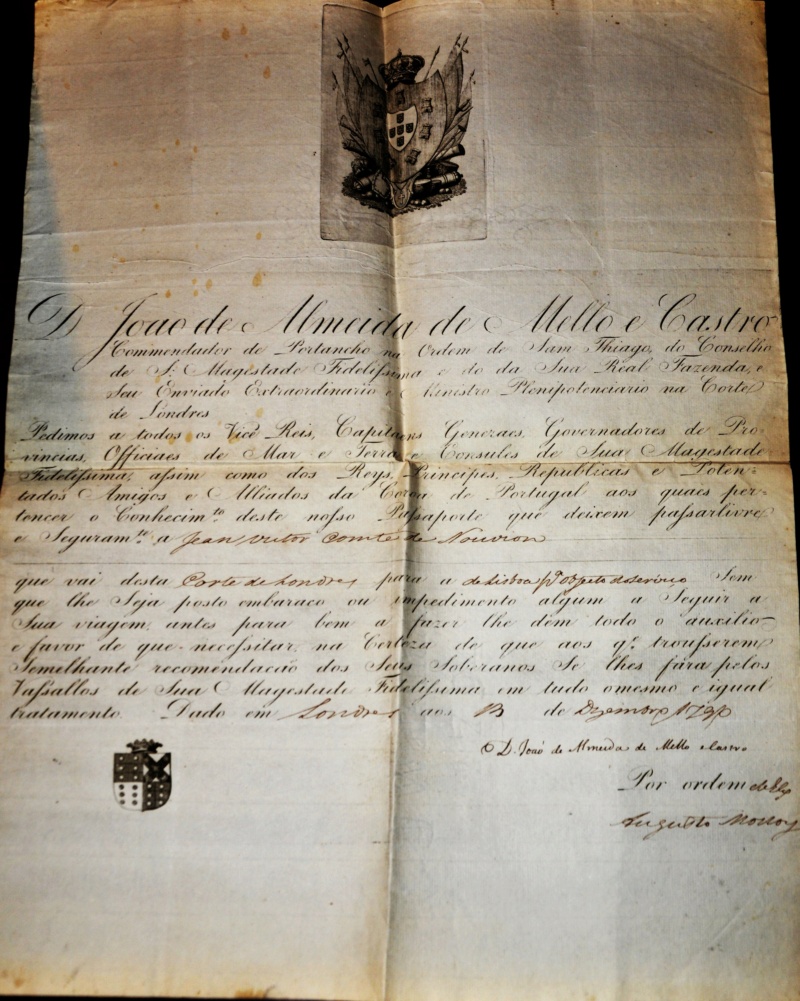 D João de Almeida de Mello e Castro
Commendador de Portancho na Ordem de Sam Thiago, do Conselho
de S. Magestade Fidelissima e do da Sua Real Fazenda, e
Seu Enviado Extraordinario e Ministro Plenipotenciario na Corte
de Londres
Pedimos a todos os Vice Reis, Capitaens Generaes, Governadores de Pro-
vincias, Officiaes de Mar e Terra e Consules de Sua Magestade
Fidelissima, assim como dos Reys, Principes, Republicas e Poten-
tados Amigos e Alliados da Coroa de Portugal aos quaes per-
tencer o Conhecim.to deste nosso Passaporte que deixem passar livre
e Seguram.te a Jean Victor Comte de Nouvion
que vai desta Corte de Londres para a de Lisboa Sem
que lhe Seja posto embaraco ou impedimento algum a Seguir a
Sua viagem, antes para bem a fazer lhe dêm todo o auxilio
e favor de que necessitar, na Certeza de que aos q.e trousserem
Semelhante recomendacão dos Seus Soberanos Se lhes fára pelos
Vassallos de Sua Magestade Fidelissima em tudo o mesmo e igual
tratamento. Dado em Londres aos 13 de Dezembro
D. João de Almeida de Mello e Castro
Por ordem de
Augusto